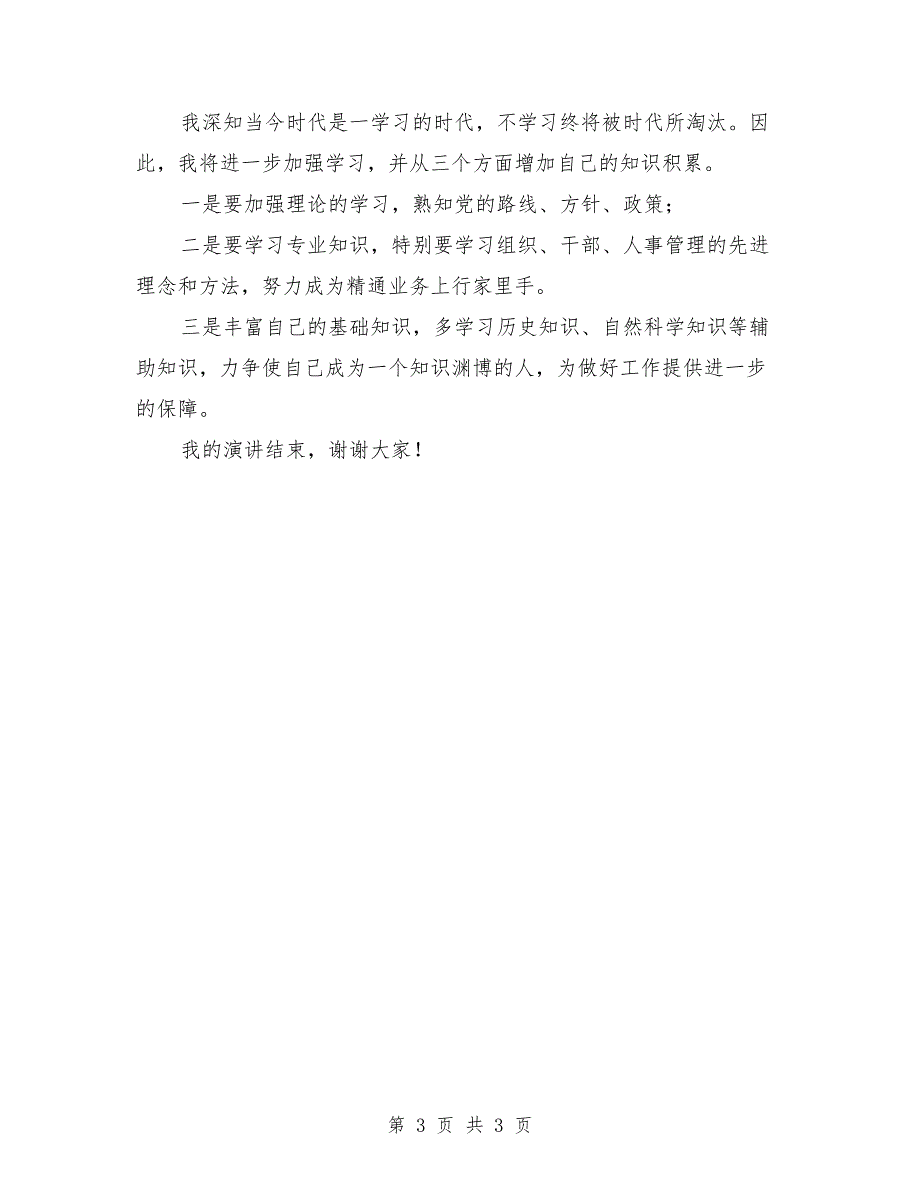 我深知当今时代是一学习的时代，不学习终将被时代所淘汰。因
此，我将进一步加强学习，并从三个方面增加自己的知识积累。
一是要加强理论的学习，熟知党的路线、方针、政策；
二是要学习专业知识，特别要学习组织、干部、人事管理的先进
理念和方法，努力成为精通业务上行家里手。
三是丰富自己的基础知识，多学习历史知识、自然科学知识等辅
助知识，力争使自己成为一个知识渊博的人，为做好工作提供进一步
的保障。
我的演讲结束，谢谢大家！
第 3 页 共 3 页